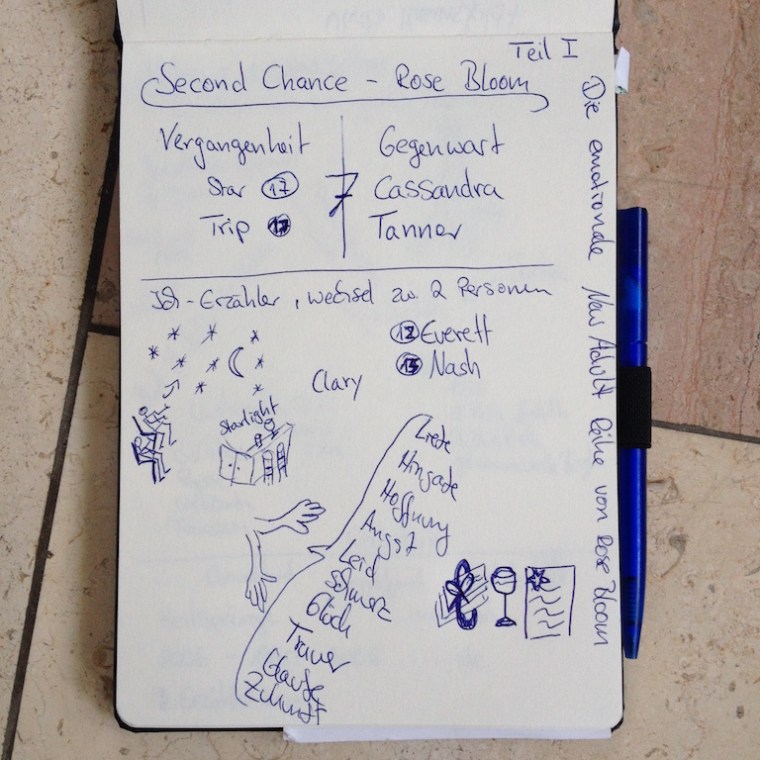 Teil I
Second Chance - Rose Bloom
Vergangenheit
Star 17
Trip
7
Gegenwart
Cassandra
Tanner
Ich-Erzähler, wechsel zw. 2 Personen
Everett
Nash
Clary
Starlight
Liebe
Hingabe
Hoffnung
Angst
Leid
Schmerz
Glück
Trauer
Glaube
Zukunft
Die emotionale New Adult Reihe von Rose Bloom